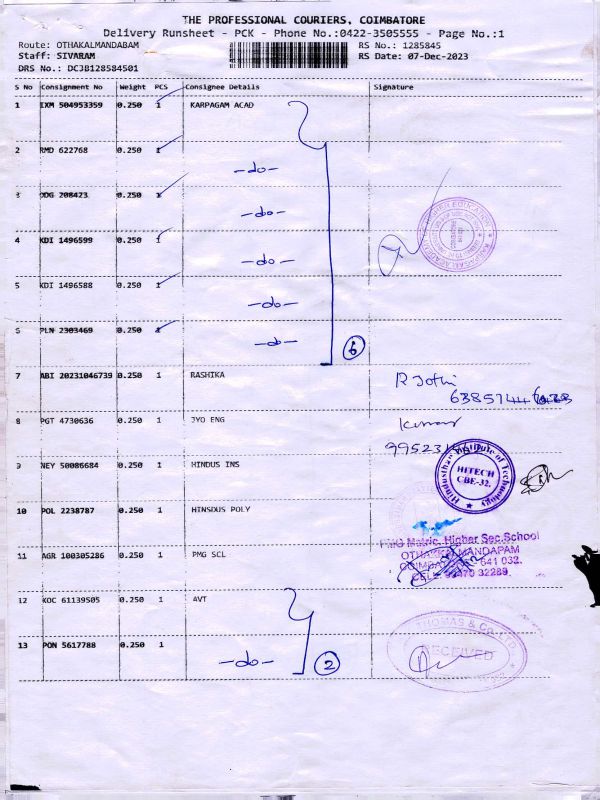 THE PROFESSIONAL COURIERS, COIMBATORE
Delivery Runsheet - PCK - Phone No.:0422-3505555 - Page No.:1
Route: OTHAKALMANDABAM RS No.: 1285845
Staff: SIVARAM RS Date: 07-Dec-2023
DRS No.: DCJB128584501
S No Consignment No Weight PCS Consignee Details Signature
1 IXM 504953359 0.250 1 KARPAGAM ACAD
2 RMD 622768 0.250 1
-do-
3 DDG 208423 0.250 1
-do-
4 KDI 1496599 0.250 1
-do-
5 KDI 1496588 0.250 1
-do-
6 PLN 2303469 0.250 1
-do- 6
7 ABI 20231046739 0.250 1 RASHIKA R Jothi
6385744
8 PGT 4730636 0.250 1 JYO ENG Kumar
99523
9 NEY 50086684 0.250 1 HINDUS INS Hindusthan Institute of Technology
HITECH
CBE-32.
10 POL 2238787 0.250 1 HINSDUS POLY
PMG Matric. Higher Sec.School
11 AGR 100305286 0.250 1 PMG SCL OTHAKKALMANDAPAM
COIMBATORE 641 032.
CELL: 90470 32289.
12 KOC 61139505 0.250 1 AVT
THOMAS & Co.
13 PON 5617788 0.250 1 RECEIVED
-do- 2